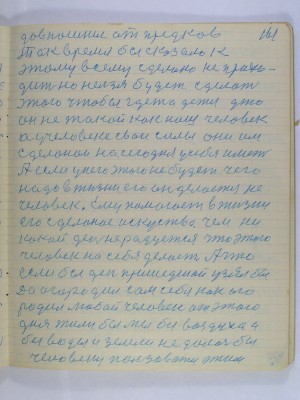 довполнил от предков 161
Так время бы сказало К
этому всему сделано не прихо-
дит но нельзя будет сделат
этого чтобы где та дети дто
он не такой как наш человек
а у человека свои силы они им
сделаной на сегодня у себя имет
А если у него этого не будет чего
надо в жизни его он делается не
человек. Ему помогает в жизни
его сделаное искуства, чем ни
какой ден не радуется то этого
человек на себя делает А то
если бы ден пришедшой узял бы
За
родил любой человек от этого
дня жили бы мы бы воздуха а
бы воды и земли не дало бы
человеку ползоватся этим